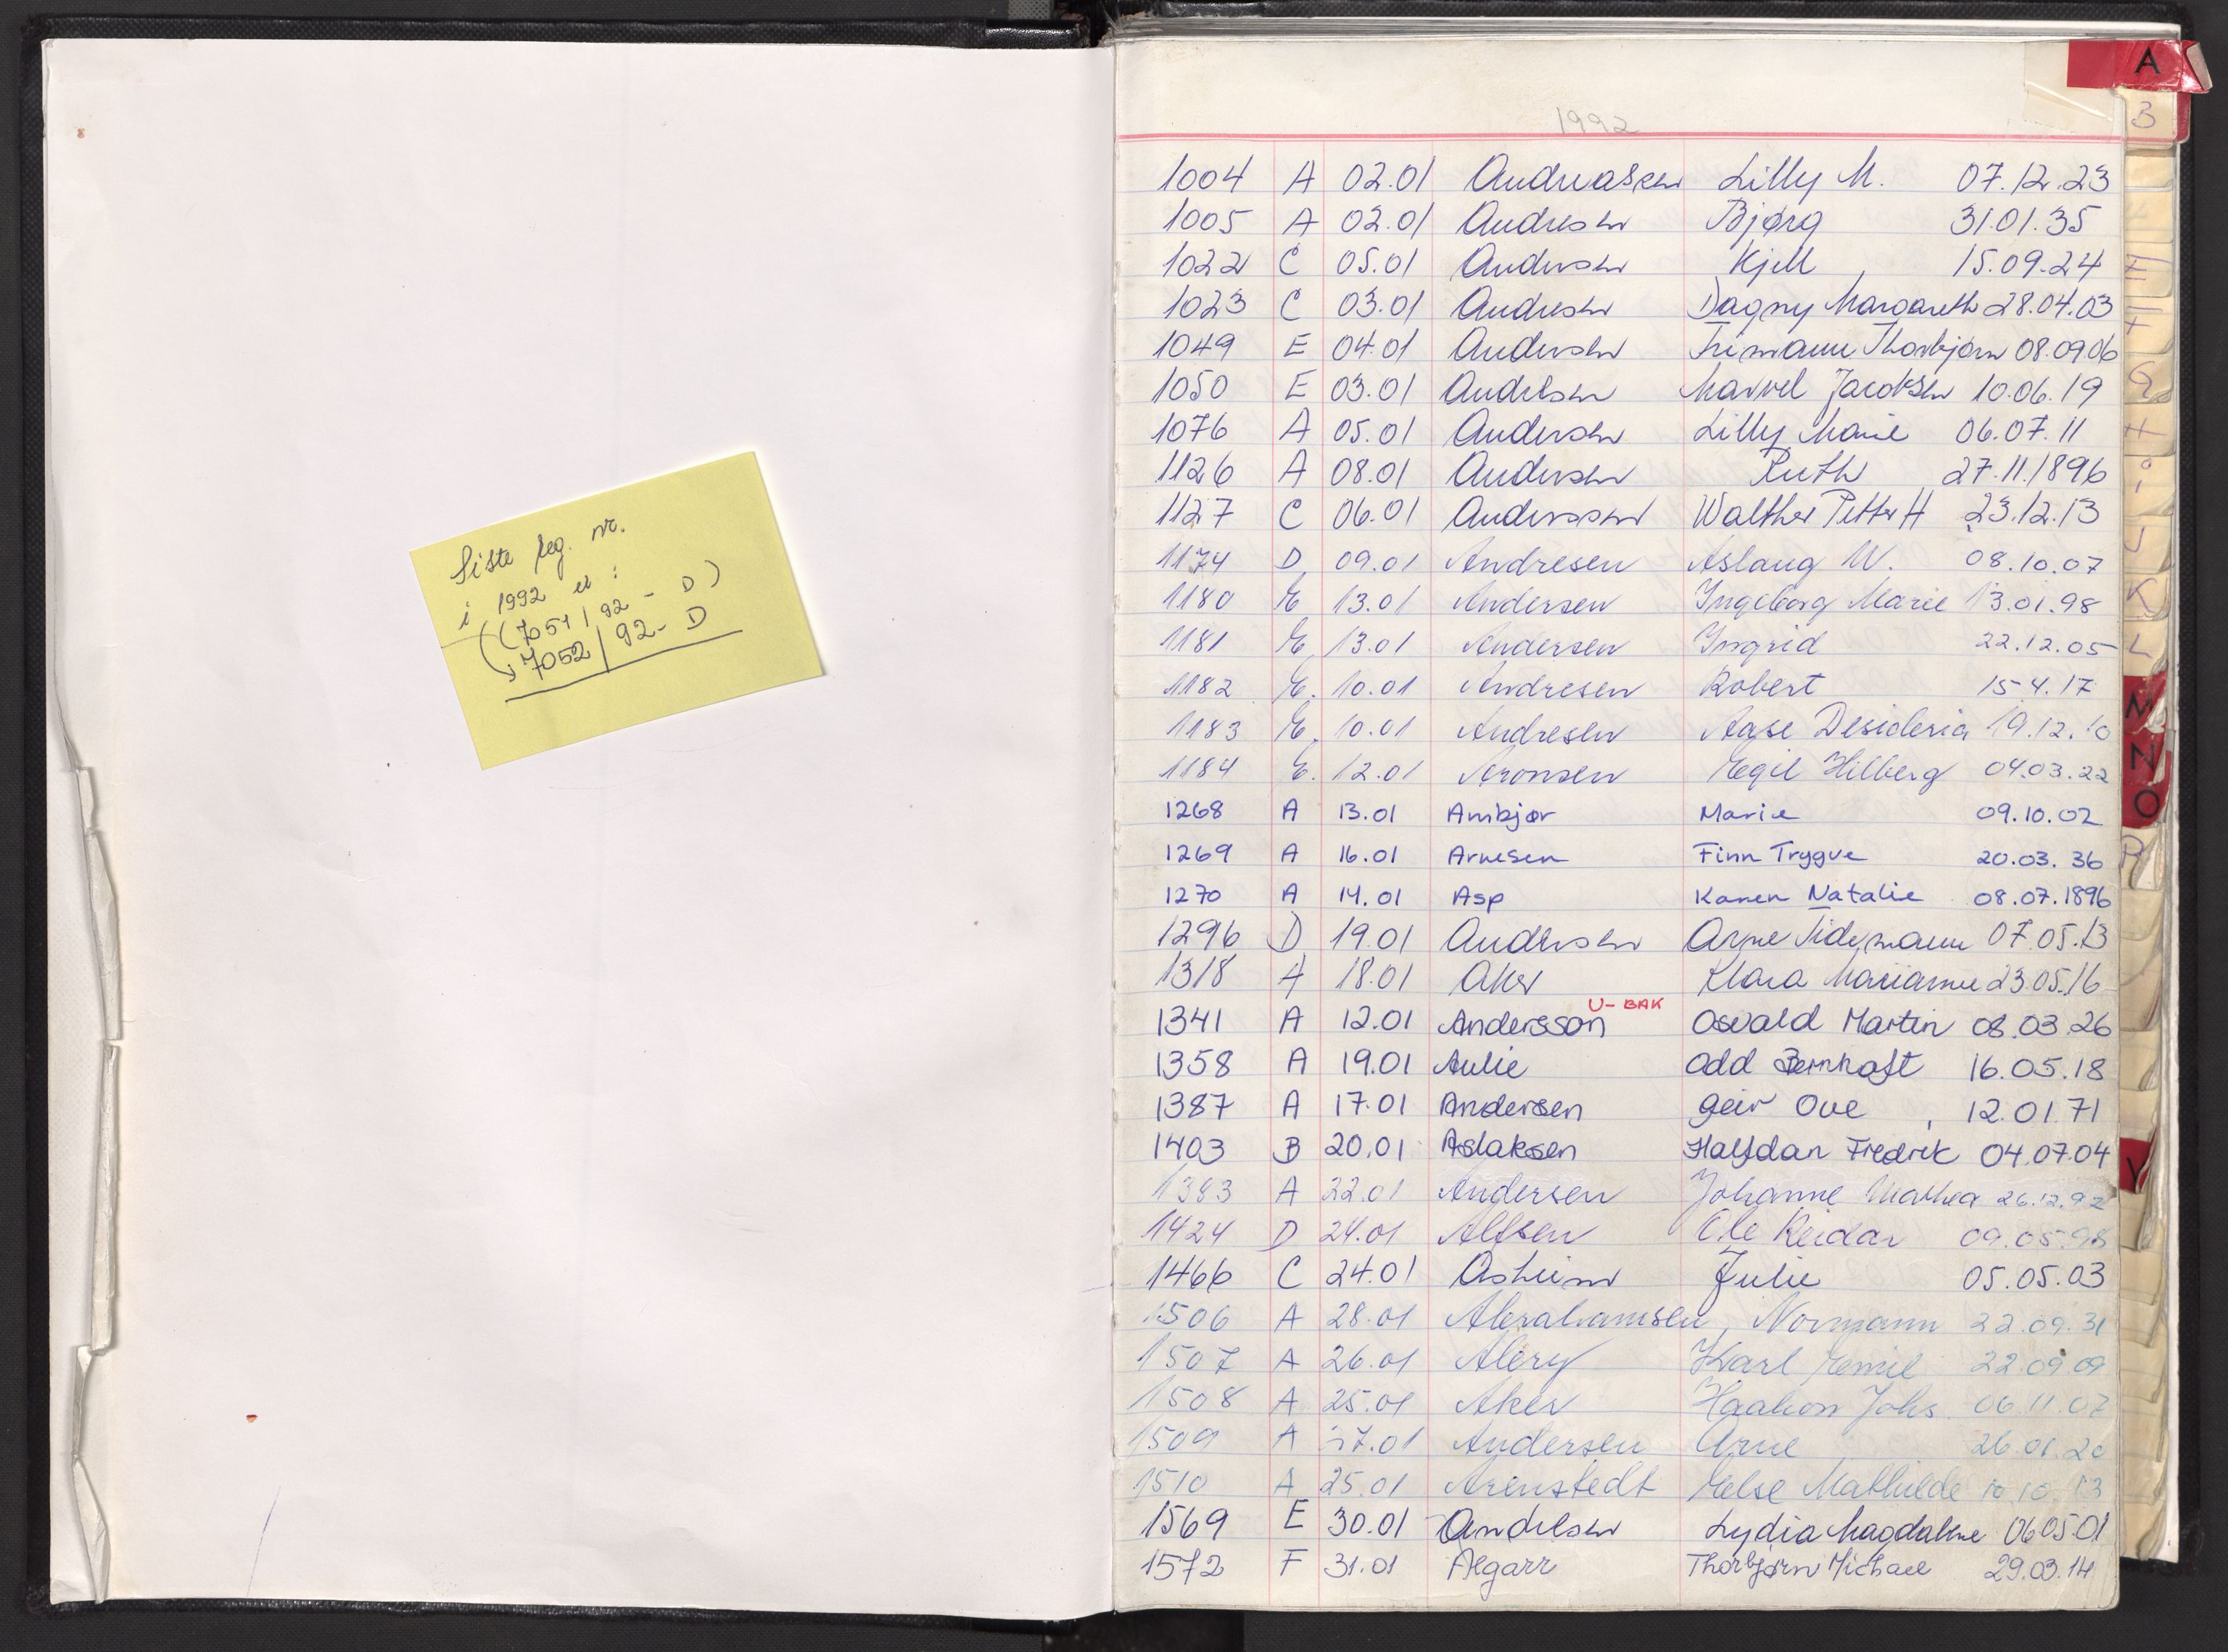 Siste reg. nr.
i 1992 er:
((7051 | 92 - D)
7052 | 92 - D
1992
A
B
1004 A 02.01 Andreassen Lilly M. 07.12.23
1005 A 02.01 Andresen Bjørg 31.01.35
1022 C 05.01 Andersen Kjell 15.09.24
1023 C 03.01 Andresen Dagny Margareth 28.04.03
1049 E 04.01 Andersen Thorbjørn 08.09.06
1050 E 03.01 Andresen Jacobsen 10.06.19
1076 A 05.01 Andersen Lilly Marie 06.07.11
1126 A 08.01 Andersen Ruth 27.11.1896
1127 C 06.01 Anderssen Walther Petter H 23.12.13
1174 D 09.01 Andresen Aslaug W. 08.10.07
1180 E 13.01 Andersen Ingeborg Marie 13.01.98
1181 E 13.01 Andersen Ingrid 22.12.05
1182 E. 10.01 Andresen Robert 15 4.17
1183 E. 10.01 Andresen Aase Desideria 19.12.10
1184 E. 12.01 Aronsen Egil Hilberg 04.03.22
1268 A 13.01 Arnbjør Marie 09.10.02
1269 A 16.01 Arnesen Finn Trygve 20.03.36
1270 A 14.01 Asp Karen Natalie 08.07.1896
1296 D 19.01 Andersen Arne Tidemann 07.05.13
1318 A 18.01 Aker Klara Marianne 23.05.16
U-BAK
1341 A 12.01 Andersson Osvald Martin 08.03.26
1358 A 19.01 Aulie Odd Bernhoft 16.05.18
1387 A 17.01 Andersen Geir Ove, 12.01.71
1403 B 20.01 Aslaksen Halfdan Fredrik 04.07.04
1393 A 22.01 Andersen Johanne Mathea 26.12.92
1424 D 24.01 Alfsen Ole Reidar 09.05.98
1466 C 24.01 Asheim Julie 05.05.03
1506 A 28.01 Abrahamsen, Normann 22.09.31
1507 A 26.01 Alery Karl Emil 22.09.09
1508 A 25.01 Aker Haakon Johs. 06.11.07
1509 A 27.01 Andersen Arne 26.01.20
1510 A 25.01 Arenstedt Else Mathilde 10 10.13
1569 E 30.01 Andresen Lydia Magdalene 06.05.01
1572 F 31.01 Algarr Thorbjørn Michael 29.03.14
G
H
i
J
K
L
M
N
O
R
V